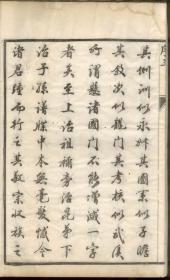 其例訓似永叔其圖系似子瞻
其敘次似龍門其考核似武溪
所謂懸諸國門不能增減一字
者矣至上治祖禰旁治昆弟下
治子孫譜牒中本無毫髮憾今
諸君踵而行之其敬宗收族之